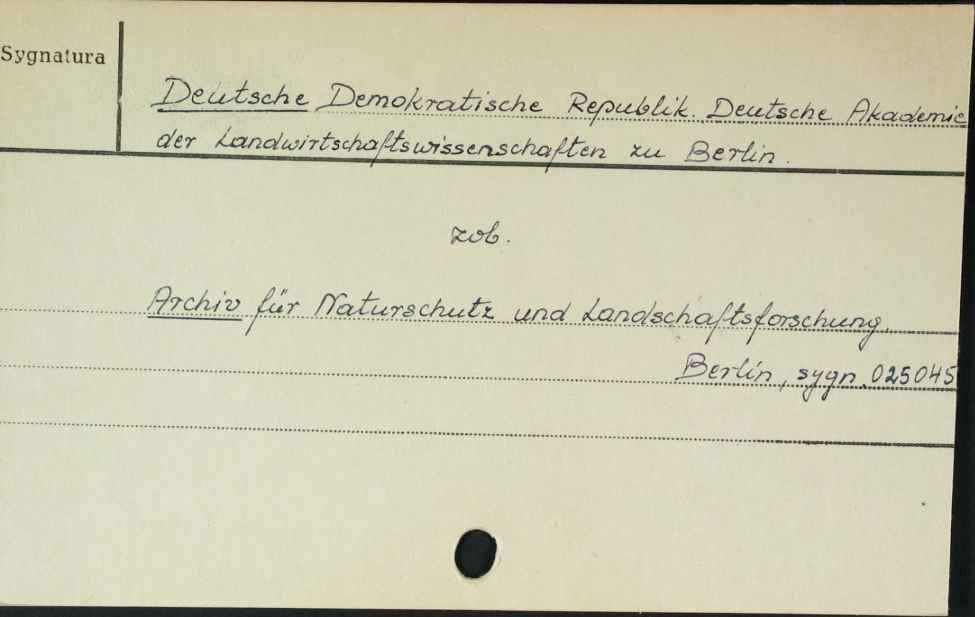 Sygnatura
Deutsche Demokratische Republik. Deutsche Akademie
der Landwirtschaftswissenschaften zu Berlin.
zob.
Archiv für Naturschutz und Landschaftsforschung.
Berlin, sygn. 025045